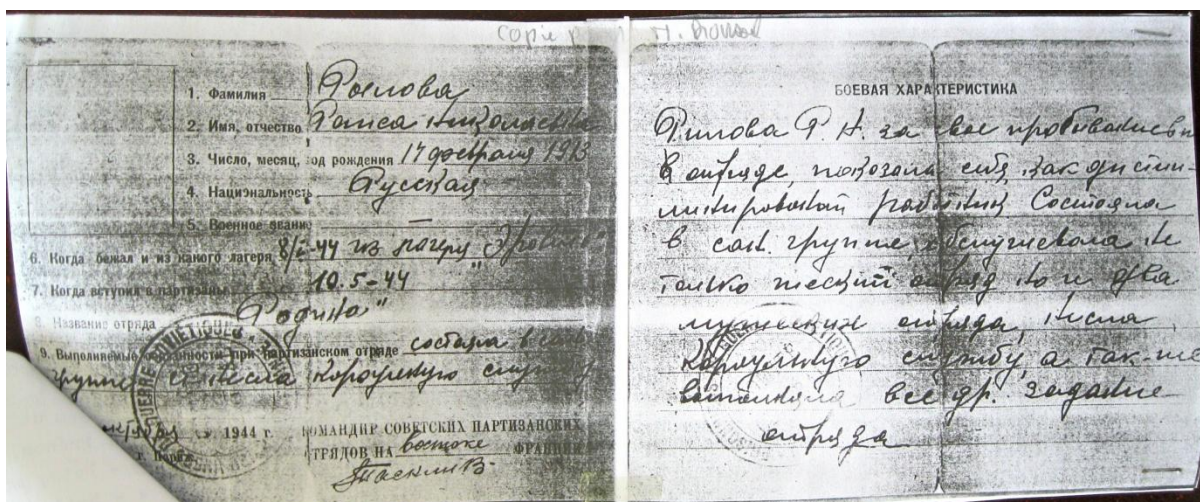 Copie
1. Фамилия Рылова
2. Имя, отчество Раиса Николаевна
3. Число, месяц, год рождения 17 февраля 1913
4. Национальность Русская
5. Военное звание —
6. Когда бежал и из какого лагеря 8/5-44 из лагеря
7. Когда вступил в партизаны 10.5-44
8. Название отряда "Родина"
9. Выполняемые обязанности при партизанском отряде состояла в сан.
группе и несла кораульную службу
октября 1944 г.
г. Париж
КОМАНДИР СОВЕТСКИХ ПАРТИЗАНСКИХ
ОТРЯДОВ НА востоке ФРАНЦИИ
БОЕВАЯ ХАРАКТЕРИСТИКА
Рилова Р. Н. за свое
в отряде, показала себя, как дисцип-
линированый работник Состояла
в сан. группе, обслуживала не
только отряд но и два
мужских отряда, несла
кораульную службу, а так-же
выполняла все др. задание
отряда